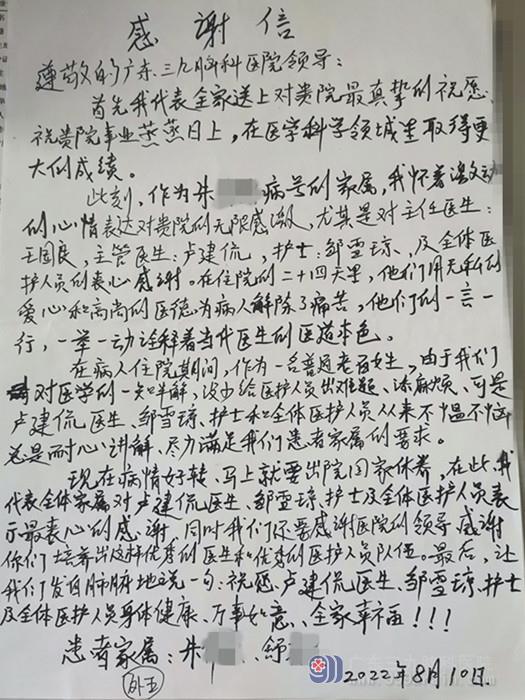 感谢信
尊敬的广东三九脑科医院领导：
首先我代表全家送上对贵院最真挚的祝愿、
祝贵院事业蒸蒸日上，在医学科学领域里取得更
大的成绩。
此刻，作为朱 病号的家属，我怀着激动
的心情表达对贵院的无限感激，尤其是对主任医生：
王国良，主管医生：卢建侃，护士：邹雪琼，及全体医
护人员的衷心感谢。在住院的二十四天里，他们用无私的
爱心和高尚的医德为病人解除了痛苦，他们的一言一
行，一举一动诠释着当代医生的医道本色。
在病人住院期间，作为一名普通老百姓，由于我们
对医学的一知半解，没少给医护人员出难题、添麻烦、可是
卢建侃医生、邹雪琼、护士和全体医护人员从来不愠不恼
总是耐心讲解、尽力满足我们患者家属的要求。
现在病情好转、马上就要出院回家休养，在此，我
代表全体家属对卢建侃医生、邹雪琼、护士及全体医护人员表
示最衷心的感谢，同时我们还要感谢医院的领导，感谢
你们培养出这样优秀的医生和优秀的医护人员队伍。最后，让
我们发自肺腑地说一句：祝愿、卢建侃医生、邹雪琼、护士
及全体医护人员身体健康、万事如意、全家幸福！！！
患者家属：朱 、舒
外五
2022年8月10日.